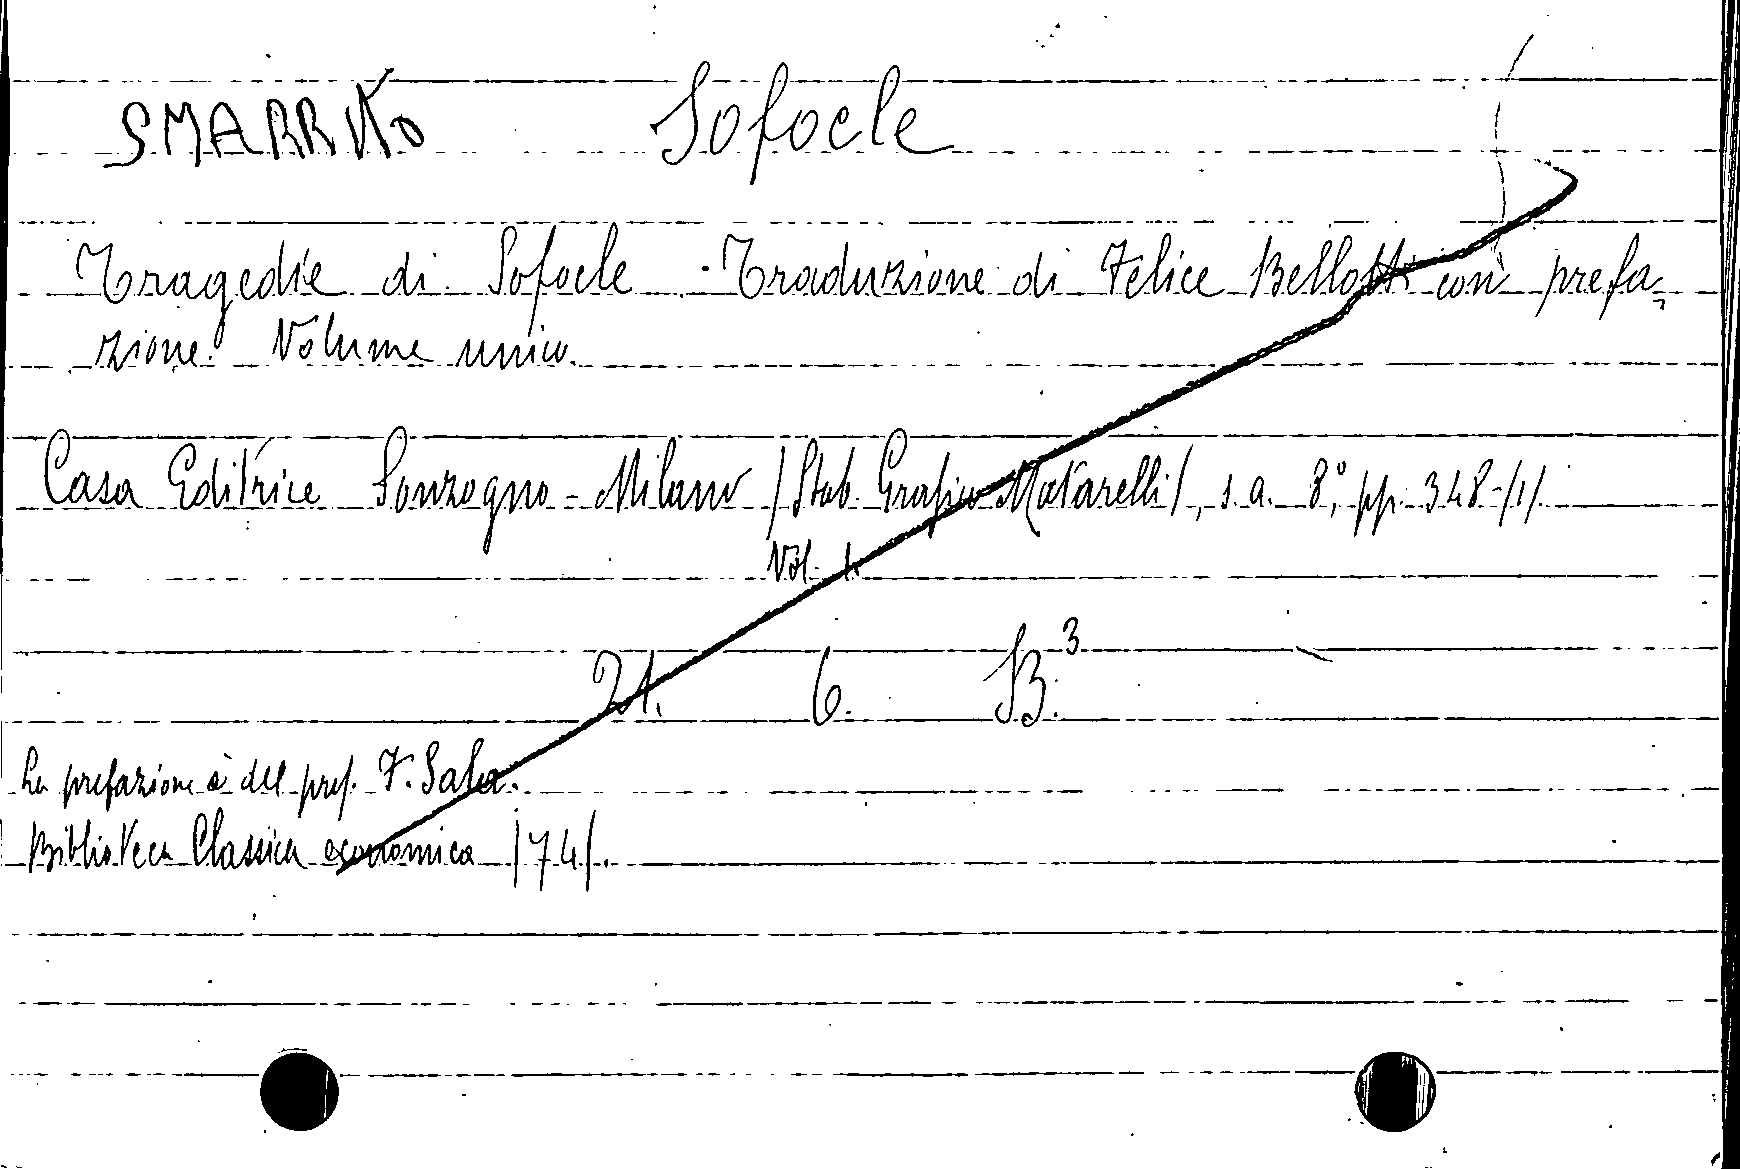 SMARRITO Sofocle
Tragedie di Sofocle. Traduzione di Felice Bellotti con prefa-
zione. Volume unico.
Casa Editrice Sonzogno - Milano /Stab. Grafico Matarelli/, s.a. 8°, pp. 348-/1/.
Vol. 1.
21. 6. B.³
La prefazione è del prof. F. Sala.
Biblioteca Classica economica /74/.